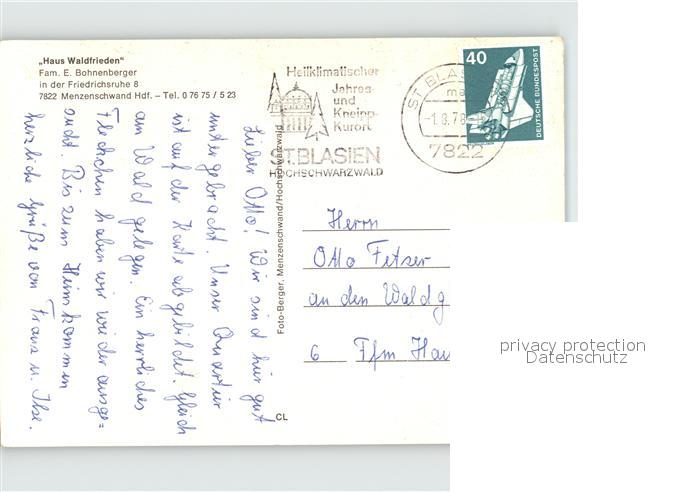 „Haus Waldfrieden“
Fam. E. Bohnenberger
in der Friedrichsruhe 8
7822 Menzenschwand Hdf. – Tel. 0 76 75 / 5 23
Heilklimatischer
Jahres-
und
Kneipp-
Kurort
ST.BLASIEN
HOCHSCHWARZWALD
ST. BLAS
-1.8.78
7822
40
DEUTSCHE BUNDESPOST
Lieber Otto! Wir sind hier gut
untergebracht. Unser Quartier
ist auf der Karte abgebildet. Gleich
am Wald gelegen. Ein herrliches
Fleckchen haben wir wieder ausge=
sucht. Bis zum Heimkommen
herzliche Grüße von Franz u. Ilse.
Foto-Berger, Menzenschwand/Hochschwarzwald
CL
Herrn
Otto Fetzer
an den Waldg
6 Ffm Hau
privacy protection
Datenschutz